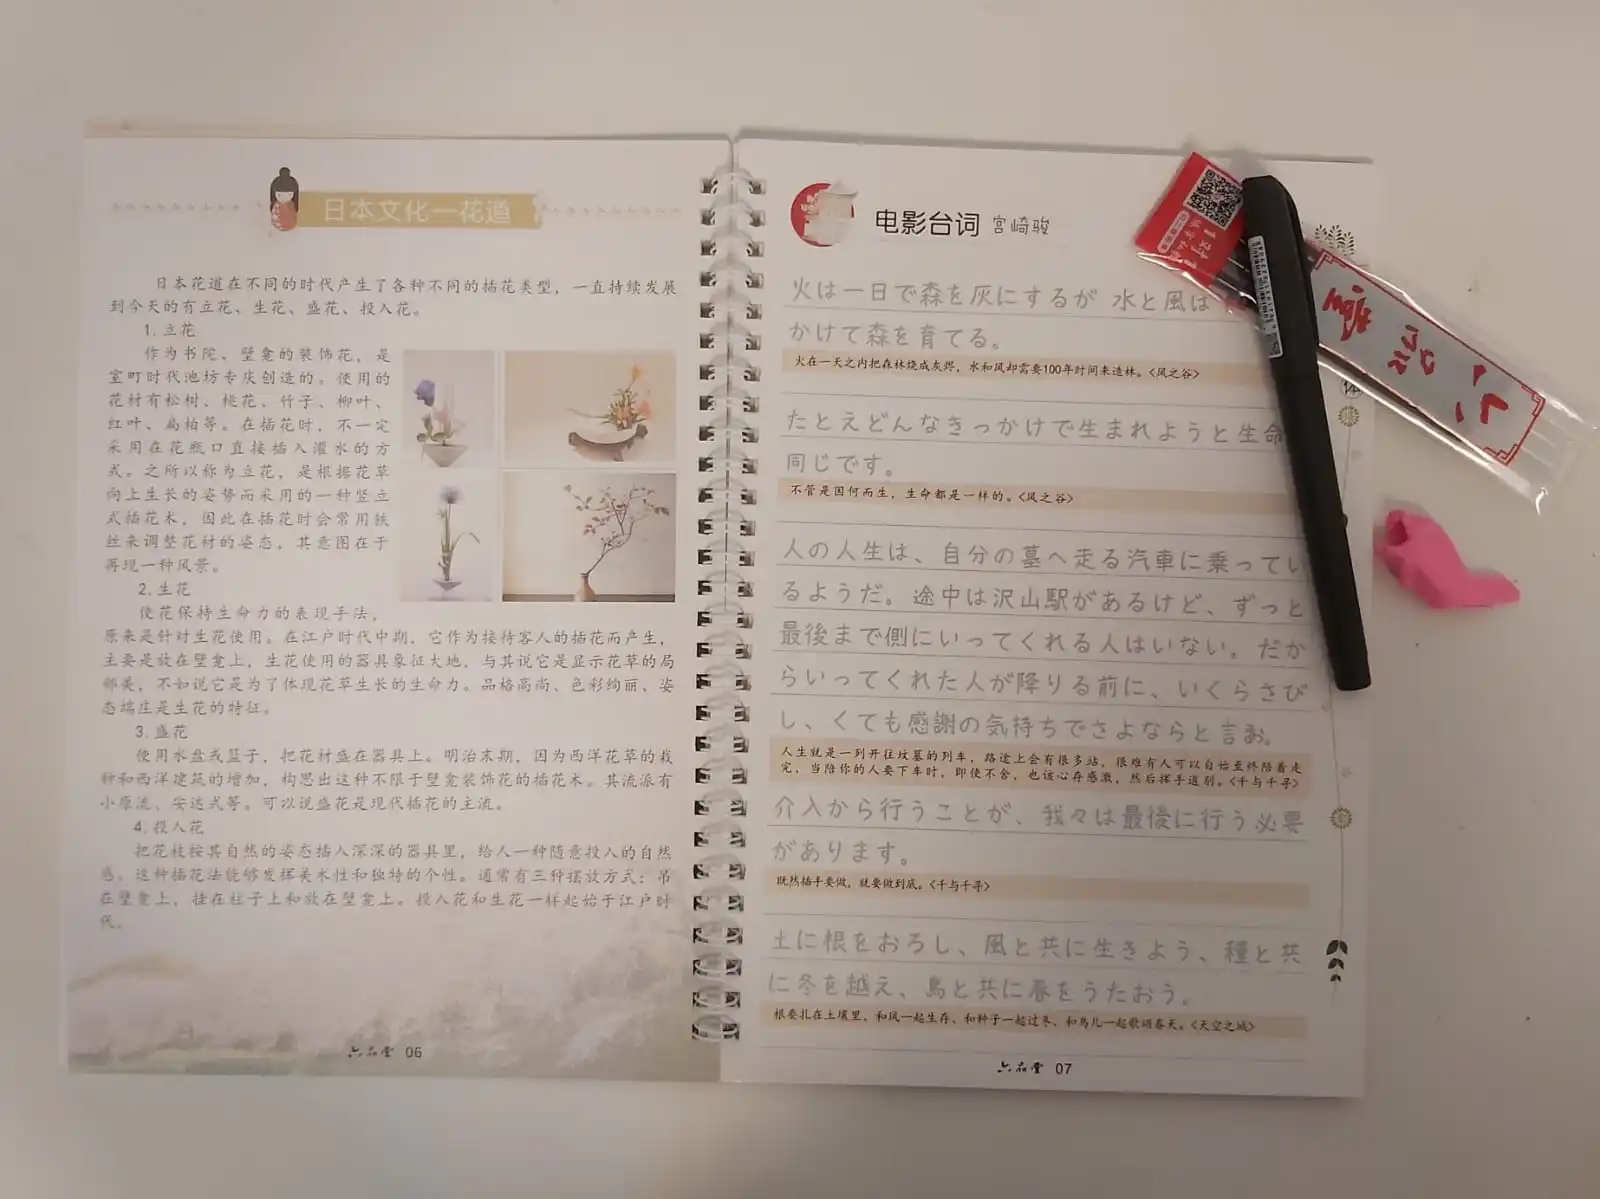 日本文化一花道
日本花道在不同的时代产生了各种不同的插花类型，一直持续发展
到今天的有立花、生花、盛花、投入花。
1. 立花
作为书院、壁龛的装饰花，是
室町时代池坊专庆创造的。使用的
花材有松树、桃花、竹子、柳叶、
红叶、扁柏等。在插花时，不一定
采用在花瓶口直接插入灌水的方
式。之所以称为立花，是根据花草
向上生长的姿势而采用的一种竖立
式插花术，因此在插花时会常用铁
丝来调整花材的姿态，其意图在于
再现一种风景。
2. 生花
使花保持生命力的表现手法，
原来是针对生花使用。在江户时代中期，它作为接待客人的插花而产生，
主要是放在壁龛上，生花使用的器具象征大地，与其说它是显示花草的局
部美，不如说它是为了体现花草生长的生命力。品格高尚、色彩绚丽、姿
态端庄是生花的特征。
3. 盛花
使用水盘或篮子，把花材盛在器具上。明治末期，因为西洋花草的栽
种和西洋建筑的增加，构思出这种不限于壁龛装饰花的插花术。其流派有
小原流、安达式等。可以说盛花是现代插花的主流。
4. 投入花
把花枝按其自然的姿态插入深深的器具里，给人一种随意投入的自然
感。这种插花法能够发挥美术性和独特的个性。通常有三种摆放方式：吊
在壁龛上，挂在柱子上和放在壁龛上。投入花和生花一样起始于江户时
代。
六品堂 06
电影台词 宫崎骏
火は一日で森を灰にするが 水と風は
かけて森を育てる。
火在一天之内把森林烧成灰烬，水和风却需要100年时间来造林。《风之谷》
たとえどんなきっかけで生まれようと生命
同じです。
不管是因何而生，生命都是一样的。《风之谷》
人の人生は、自分の墓へ走る汽車に乗ってい
るようだ。途中は沢山駅があるけど、ずっと
最後まで側にいってくれる人はいない。だか
らいってくれた人が降りる前に、いくらさび
し、くても感謝の気持ちでさよならと言お。
人生就是一列开往坟墓的列车，路途上会有很多站，很难有人可以自始至终陪着走
完，当陪你的人要下车时，即使不舍，也该心存感激，然后挥手道别。《千与千寻》
介入から行うことが、我々は最後に行う必要
があります。
既然插手要做，就要做到底。《千与千寻》
土に根をおろし、風と共に生きよう、種と共
に冬を越え、鳥と共に春をうたおう。
根要扎在土壤里、和风一起生存、和种子一起过冬、和鸟儿一起歌颂春天。《天空之城》
六品堂 07
体
六品堂